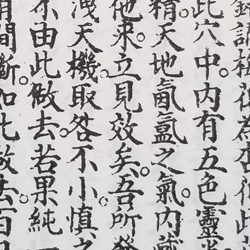 此穴中。內有五色靈
精。天地氤氳之氣。內
他來。立見效矣。吾所發
洩天機。取咎不小。慎之
不由此做去。若果純
間斷。如此做去。百